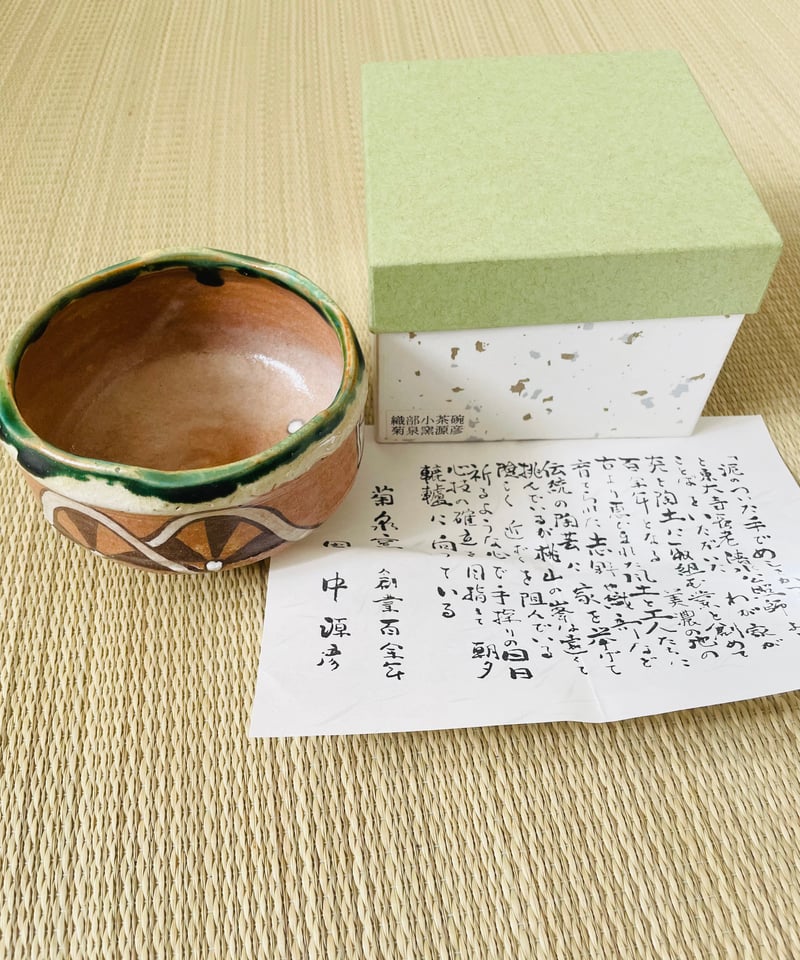 織部小茶碗
菊泉窯源彦
「泥のついた手で
と東大寺長老清水公照師
ことばをいただいた わが家が
炎と陶土に取組む業を創めて
百余年となる 美濃の地の
古より恵まれた風土と工人たちに
育くまれた志野や織部など
伝統の陶芸に一家を挙げて
挑んでいるが桃山の峯は遠くて
険しく 近づくを阻んでいる
祈るような心で手探りの日日
心技の確立を目指して 朝夕
轆轤に向っている
菊泉窯 創業百余年
田中源彦